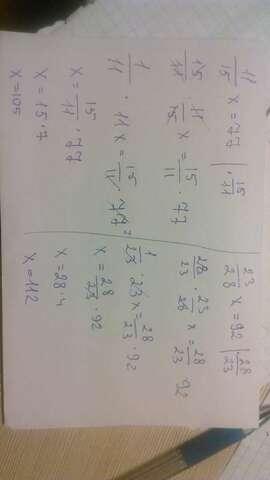 11/15 x = 77 | 15/11
15/11 · 11/15 x = 15/11 · 77
1/11 · 11x = 15/11 · 77
x = 15/11 · 77
x = 15 · 7
x = 105
23/28 x = 92 | 28/23
28/23 · 23/28 x = 28/23 92
1/23 · 23x = 28/23 · 92
x = 28/23 · 92
x = 28 · 4
x = 112